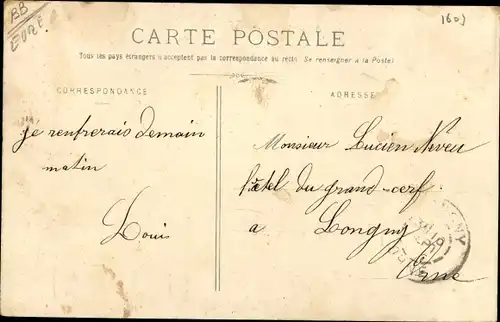 BB
EURE
1601
CARTE POSTALE
Tous les pays étrangers n'acceptent pas la correspondance au recto (Se renseigner à la Poste)
CORRESPONDANCE
ADRESSE
je rentrerais demain
matin
Louis
Monsieur Lucien Neveu
hôtel du grand-cerf
a Longny
Orne